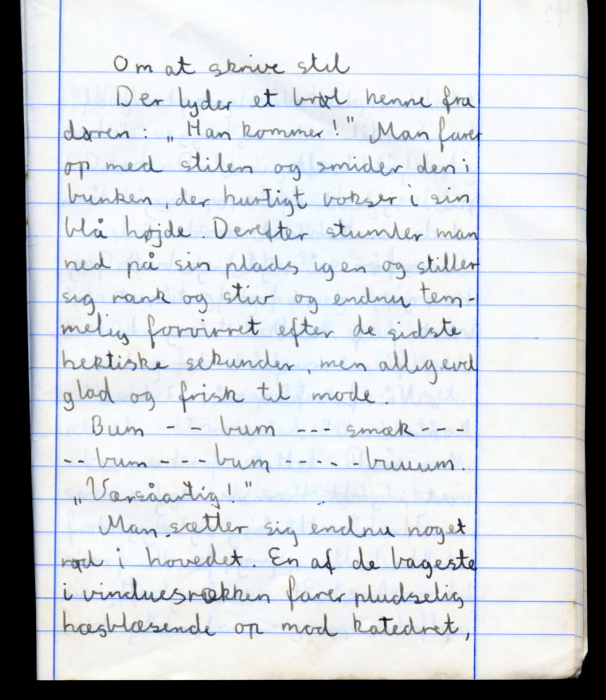 Om at skrive stil
Der lyder et brøl henne fra
døren: „Han kommer!" Man farer
op med stilen og smider den i
bunken, der hurtigt vokser i sin
blå højde. Derefter stumler man
ned på sin plads igen og stiller
sig rank og stiv og endnu tem-
melig forvirret efter de sidste
hektiske sekunder, men alligevel
glad og frisk til mode.
Bum - - bum --- smæk - - -
-- bum - - - bum - - - - - buuum.
„Værsåartig!"
Man sætter sig endnu noget
rød i hovedet. En af de bageste
i vinduesrækken farer pludselig
hæsblæsende op mod katedret,